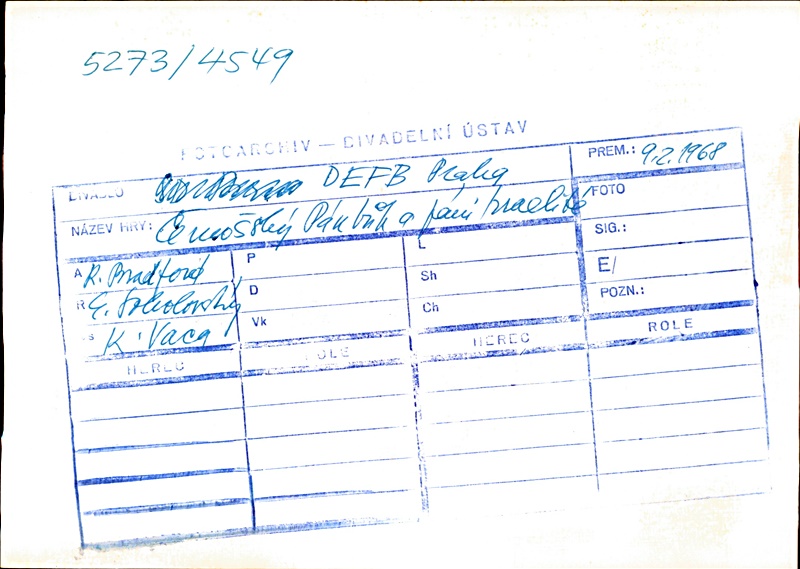 5273/4549
FOTOARCHIV — DIVADELNÍ ÚSTAV
DIVADLO DEFB Praha PREM.: 9.2.1968
NÁZEV HRY: Černošský Pán bůh a páni Izraelité FOTO
SIG.:
A R. Bradford P L E/
R E. Sokolovský D Sh POZN.:
s K. Vaca Vk Ch
HEREC ROLE HEREC ROLE